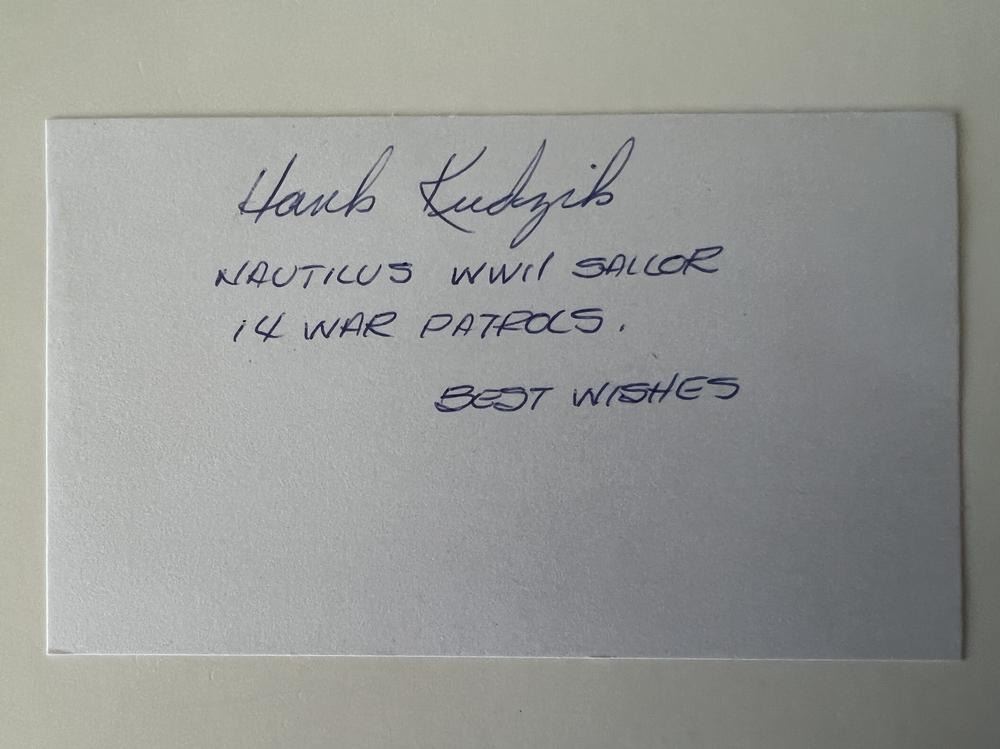 Hank Kudzik
NAUTILUS WWII SAILOR
14 WAR PATROLS.
BEST WISHES